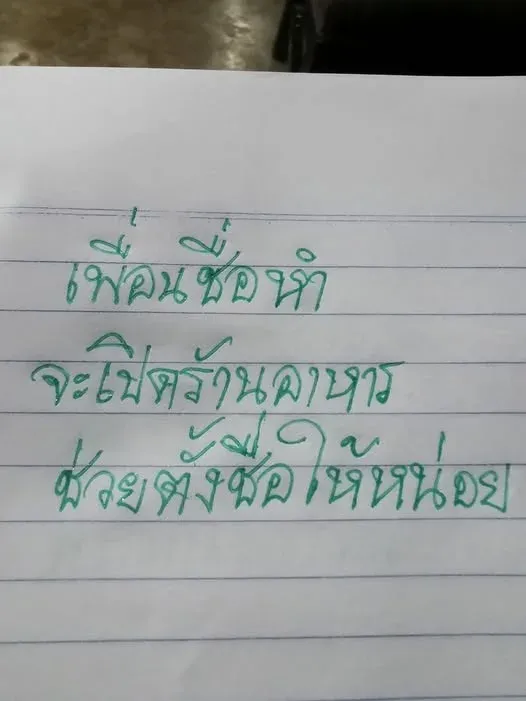 เพื่อนชื่อหำ
จะเปิดร้านอาหาร
ช่วยตั้งชื่อให้หน่อย